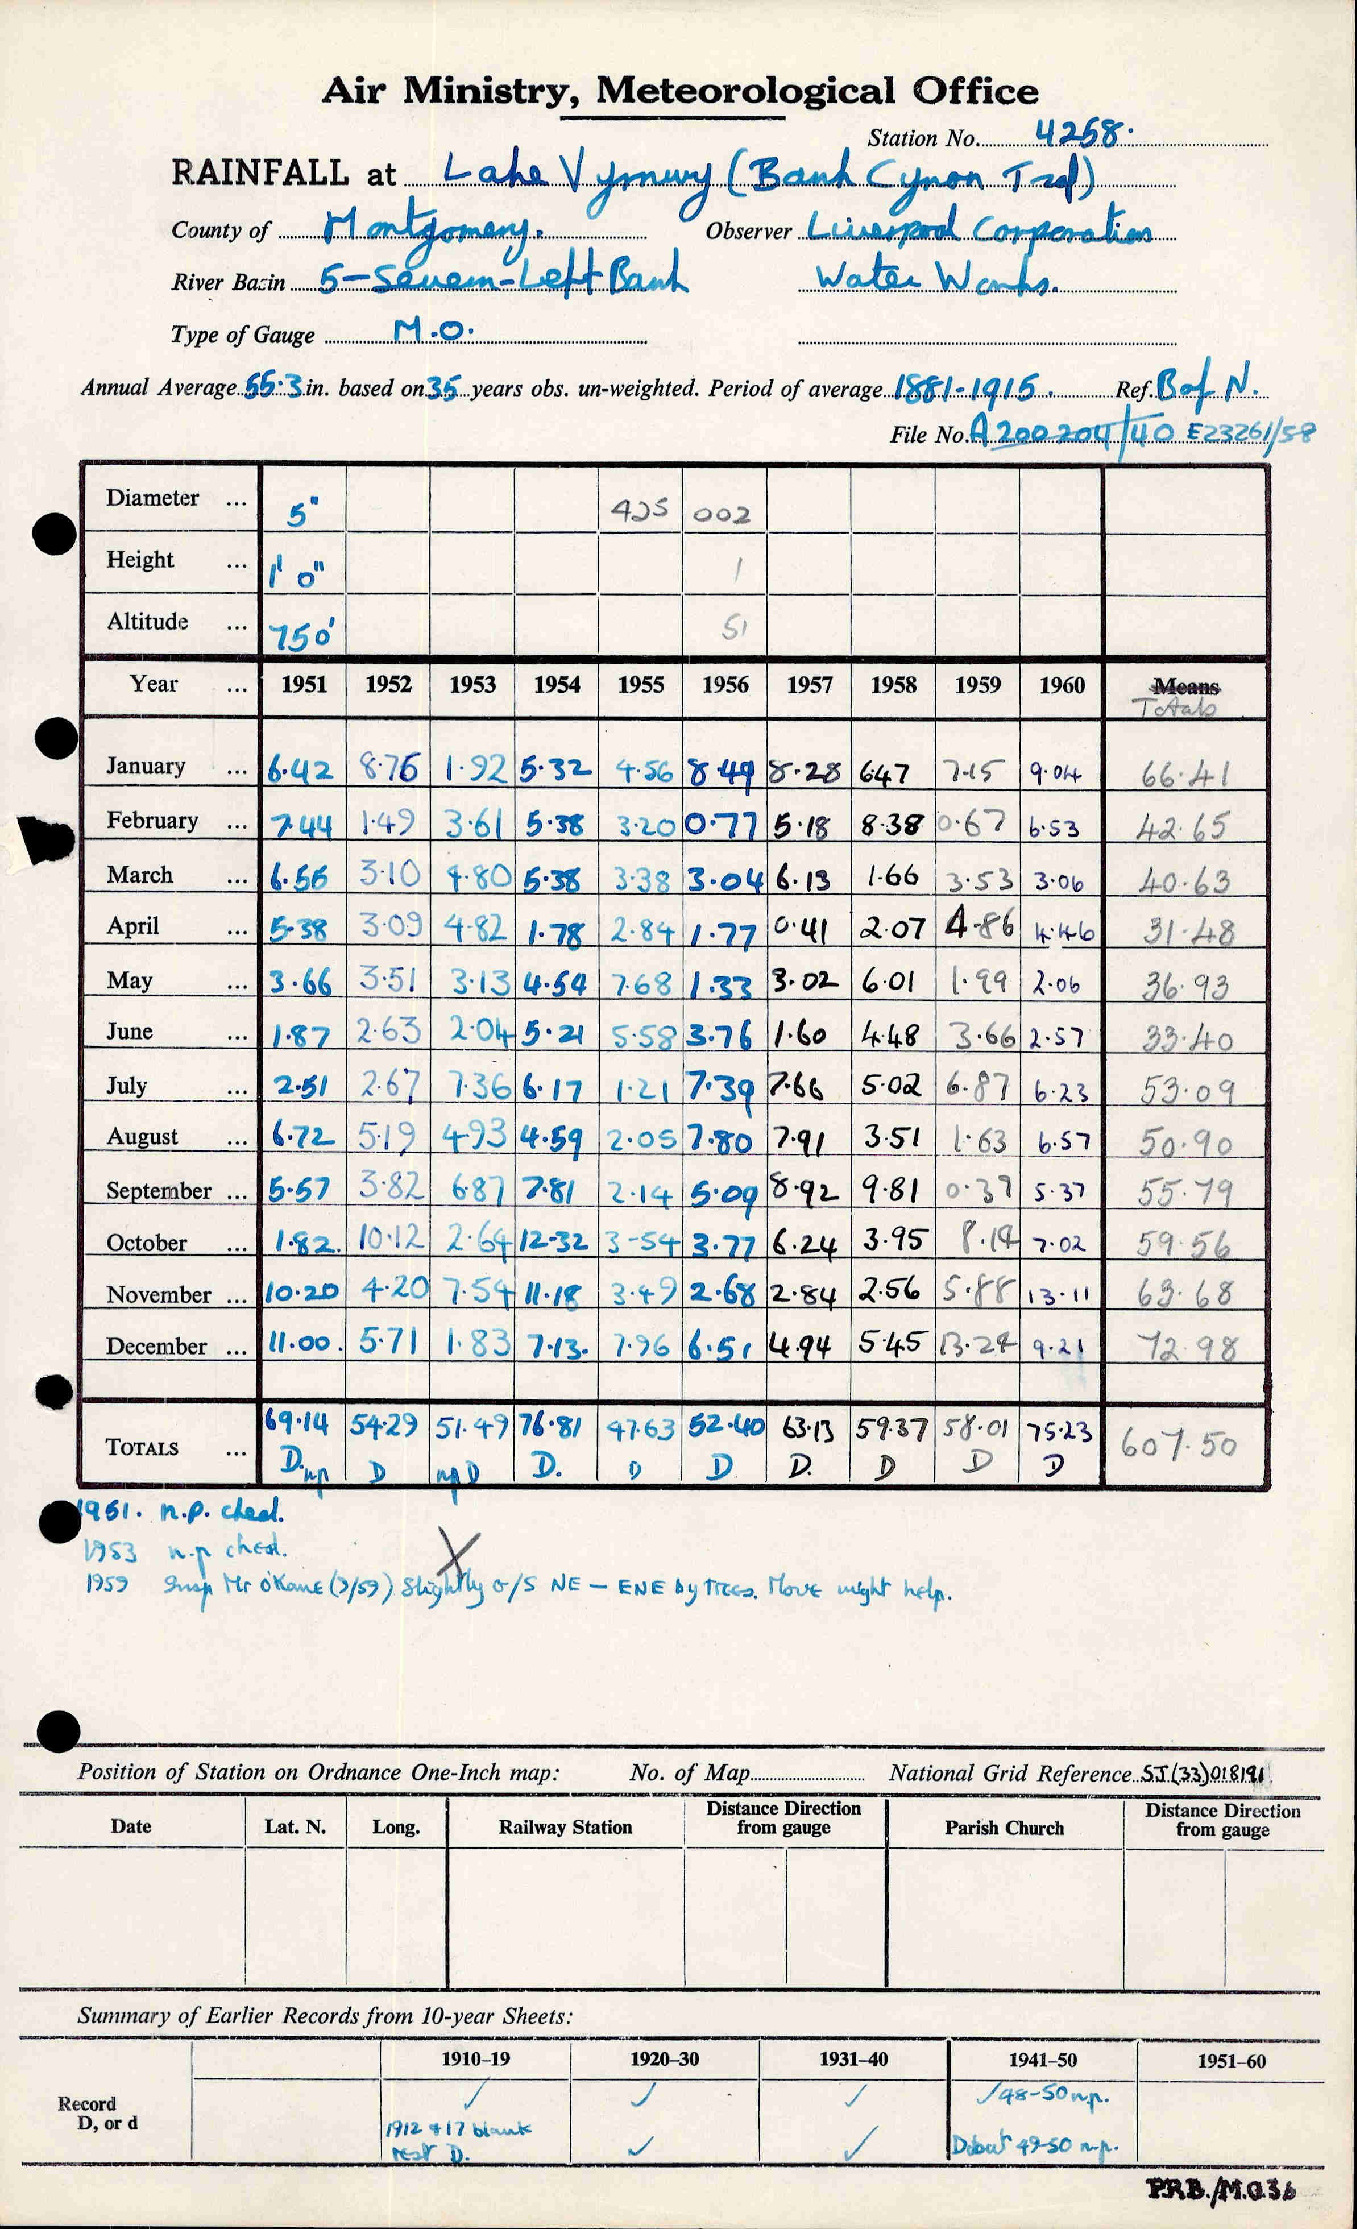 Air Ministry, Meteorological Office
Station No. 4258.
RAINFALL at Lake Vyrnwy (Bank Cynon Isaf)
County of Montgomery. Observer Liverpool Corporation
River Basin 5-Severn-Left Bank Water Works.
Type of Gauge M.O.
Annual Average 55.3 in. based on 35 years obs. un-weighted. Period of average 1881-1915. Ref. B of N.
File No. A 200204/40 E23261/58
Diameter ... 5" 425 002
Height ... 1' 0" 1
Altitude ... 750' 51
Year ... 1951 1952 1953 1954 1955 1956 1957 1958 1959 1960 Means
Totals
January ... 6.42 8.76 1.92 5.32 4.56 8.49 8.28 6.47 7.15 9.04 66.41
February ... 7.44 1.49 3.61 5.38 3.20 0.77 5.18 8.38 0.67 6.53 42.65
March ... 6.55 3.10 4.80 5.38 3.38 3.04 6.13 1.66 3.53 3.06 40.63
April ... 5.38 3.09 4.82 1.78 2.84 1.77 0.41 2.07 4.86 4.46 31.48
May ... 3.66 3.51 3.13 4.54 7.68 1.33 3.02 6.01 1.99 2.06 36.93
June ... 1.87 2.63 2.04 5.21 5.58 3.76 1.60 4.48 3.66 2.57 33.40
July ... 2.51 2.67 7.36 6.17 1.21 7.39 7.66 5.02 6.87 6.23 53.09
August ... 6.72 5.19 4.93 4.59 2.05 7.80 7.91 3.51 1.63 6.57 50.90
September ... 5.57 3.82 6.87 7.81 2.14 5.09 8.92 9.81 0.37 5.37 55.79
October ... 1.82 10.12 2.64 12.32 3.54 3.77 6.24 3.95 8.14 7.02 59.56
November ... 10.20 4.20 7.54 11.18 3.49 2.68 2.84 2.56 5.88 13.11 63.68
December ... 11.00 5.71 1.83 7.13 7.96 6.51 4.94 5.45 13.24 9.21 72.98
TOTALS ... 69.14 54.29 51.49 76.81 47.63 52.40 63.13 59.37 58.01 75.23 607.50
D. np D np D D. D D D. D D D
1951. n.p. ched.
1953 n.p ched.
1959 Insp Mr O'Kane (7/59) Slightly o/s NE - ENE by trees. Move might help.
Position of Station on Ordnance One-Inch map: No. of Map National Grid Reference SJ(33)018191
Date Lat. N. Long. Railway Station Distance Direction from gauge Parish Church Distance Direction from gauge
Summary of Earlier Records from 10-year Sheets:
1910-19 1920-30 1931-40 1941-50 1951-60
Record ✓ ✓ ✓ ✓ 48-50 n.p.
D, or d 1912 & 17 blank rest D. ✓ ✓ D but 49-50 n.p.
P.R.B./M.O.36